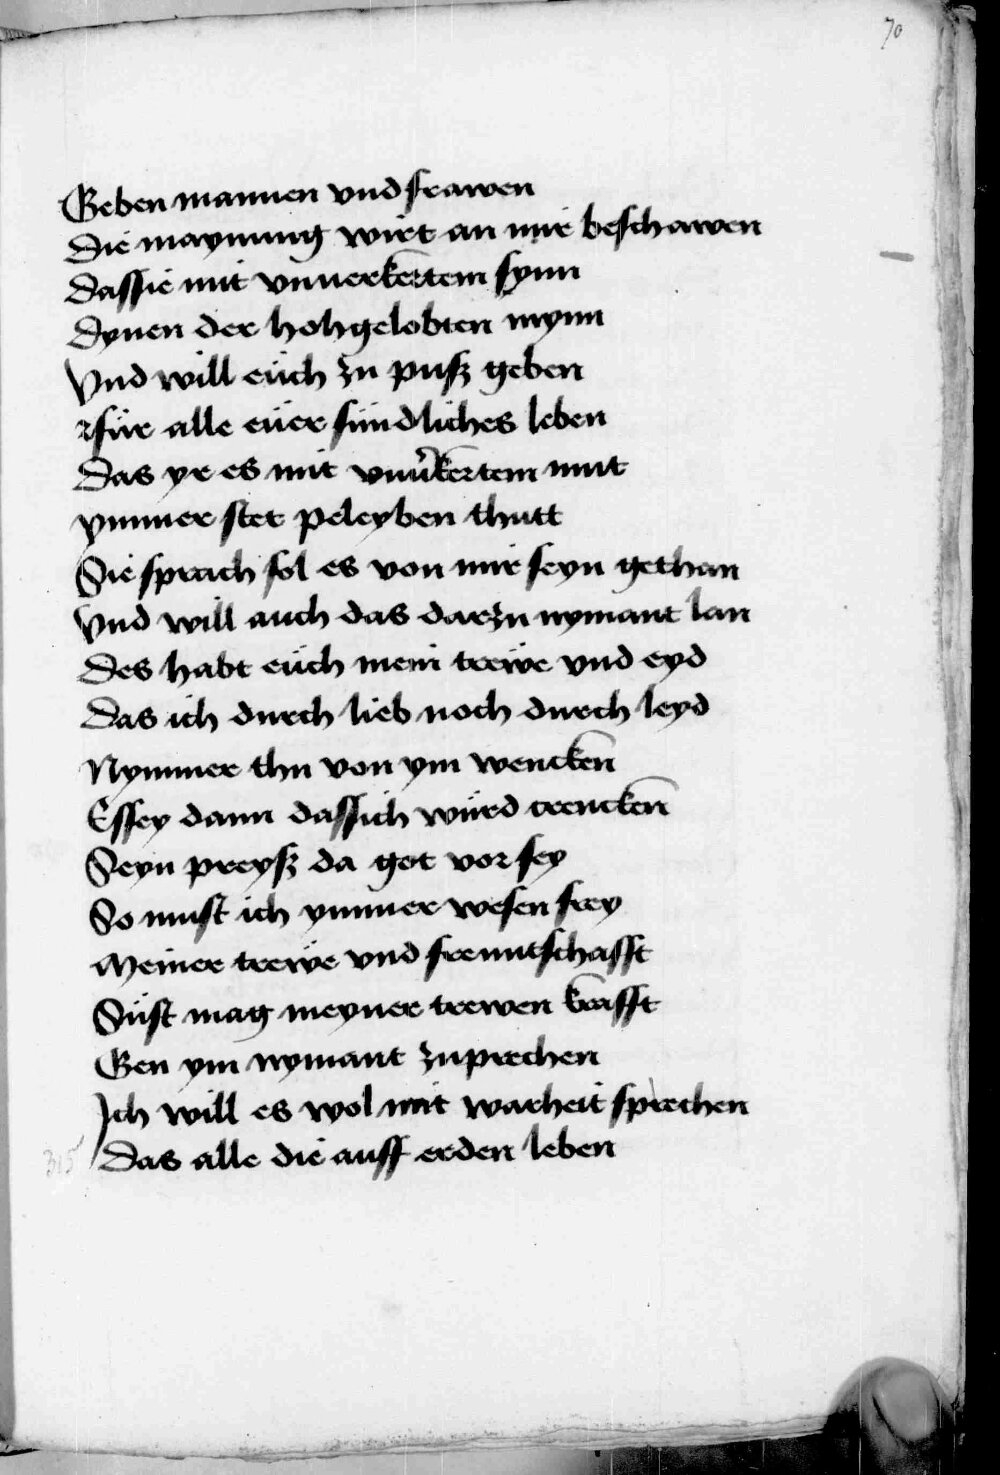 70
Geben mannen vnd frawen
Die maynung wirt an mir beschawen
Dassie mit vnuerkertem synn
Dynen der hohgelobten mynn
Vnd will eüch zu pusz geben
Für alle eüer sündliches leben
Das yr es mit vnu̾kertem mut
ymmer stet peleyben thutt
Sie sprach sol es von mir seyn gethan
Vnd will auch das darzu nymant lan
Des habt eüch mein trewe vnd eyd
Das ich durch lieb noch durch leyd
Nymmer thu von ym wencken
Essey dann dassich würd trencken
Seyn preysz da got vor sey
So must ich ymmer wesen frey
Meiner trewe vnd freuntschafft
Süst mag meyner trewen krafft
Gen ym nymant zuprechen
Ich will es wol mit warheit sprechen
315 Das alle die auff erden leben